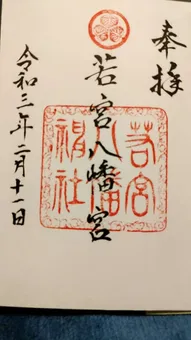 奉拝
若宮八幡宮
令和三年二月十一日